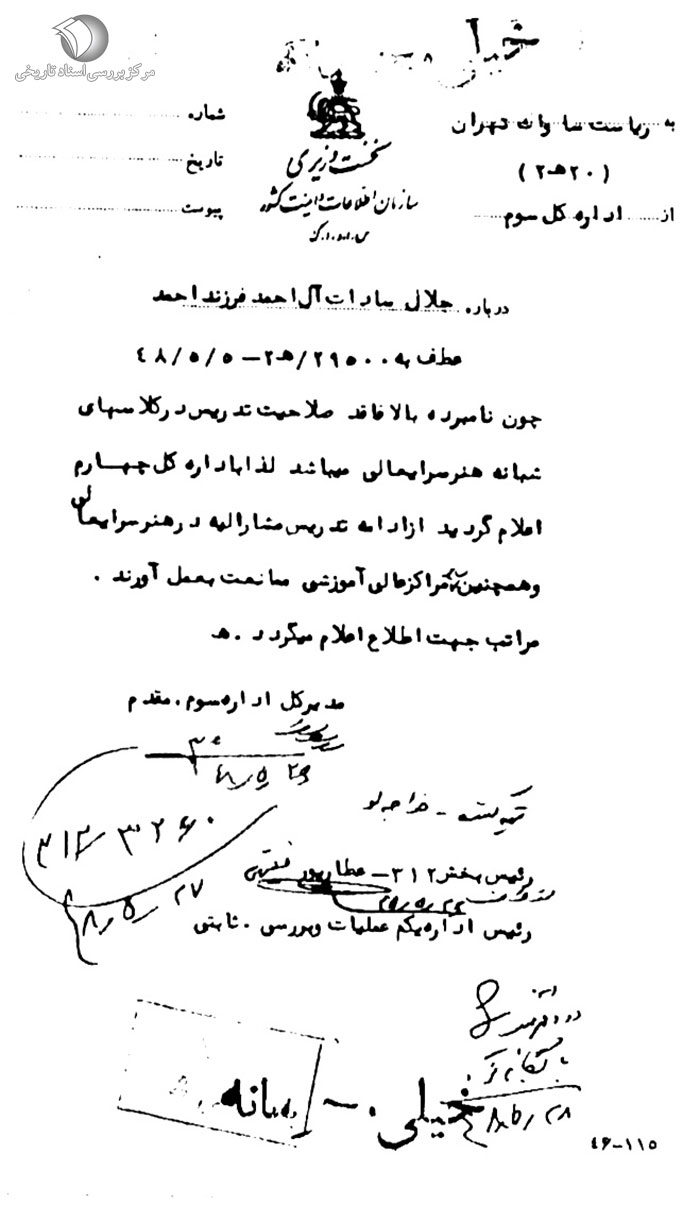 مرکز بررسی اسناد تاریخی
خیلی
به ریاست ساواک تهران
(۲۰هـ۲)
از اداره کل سوم
نخست وزیری
سازمان اطلاعات و امنیت کشور
س.ا.و.ا.ک
شماره
تاریخ
پیوست
درباره جلال سادات آل احمد فرزند احمد
عطف به ۲۹۵۰۰/هـ۲-۴۸/۵/۵
چون نامبرده بالا فاقد صلاحیت تدریس در کلاسهای
شبانه هنرسرایعالی میباشد لذا باداره کل چهارم
اعلام گردید ازادامه تدریس مشارالیه در هنرسرایعالی
وهمچنین سایر مراکزعالی آموزشی ممانعت بعمل آورند .
مراتب جهت اطلاع اعلام میگردد .هـ
مدیرکل اداره سوم . مقدم
۴۸/۵/۲۶
تهیه کننده - خواجه لو
۳۱۲/۳۲۶۰
۴۸/۵/۲۷
رئیس بخش ۳۱۲- عطارپور
رئیس اداره یکم عملیات وبررسی . ثابتی
بایگانی
۴۸/۵/۲۸
خیلی محرمانه
۴۶-۱۱۵